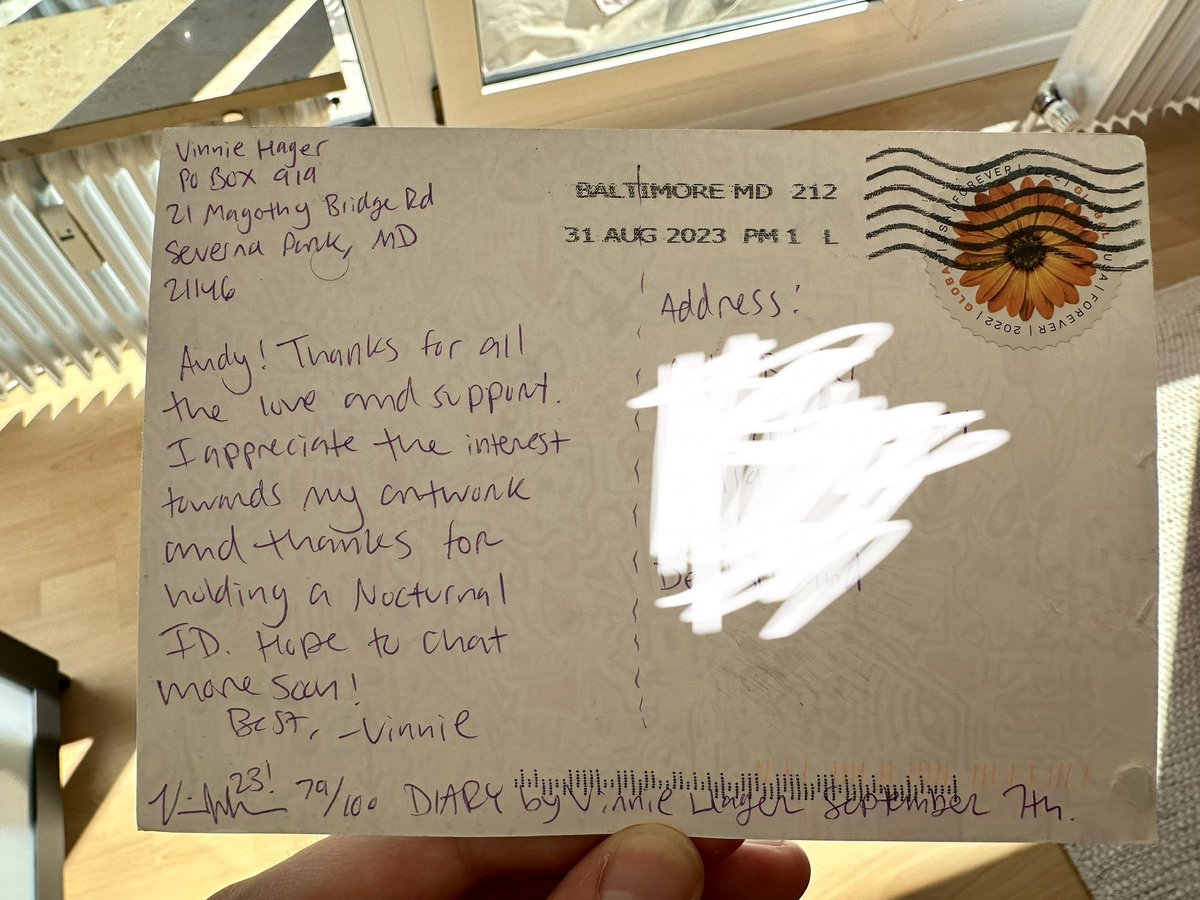 Vinnie Hager
PO BOX 919
21 Magothy Bridge Rd
Severna Park, MD
21146
BALTIMORE MD 212
31 AUG 2023 PM 1 L
GLOBAL | USA | FOREVER | 2022 |
Address:
Andy! Thanks for all
the love and support.
I appreciate the interest
towards my artwork
and thanks for
holding a Nocturnal
ID. Hope to chat
more soon!
Best, -Vinnie
23! 79/100 DIARY by Vinnie Hager September 7th.